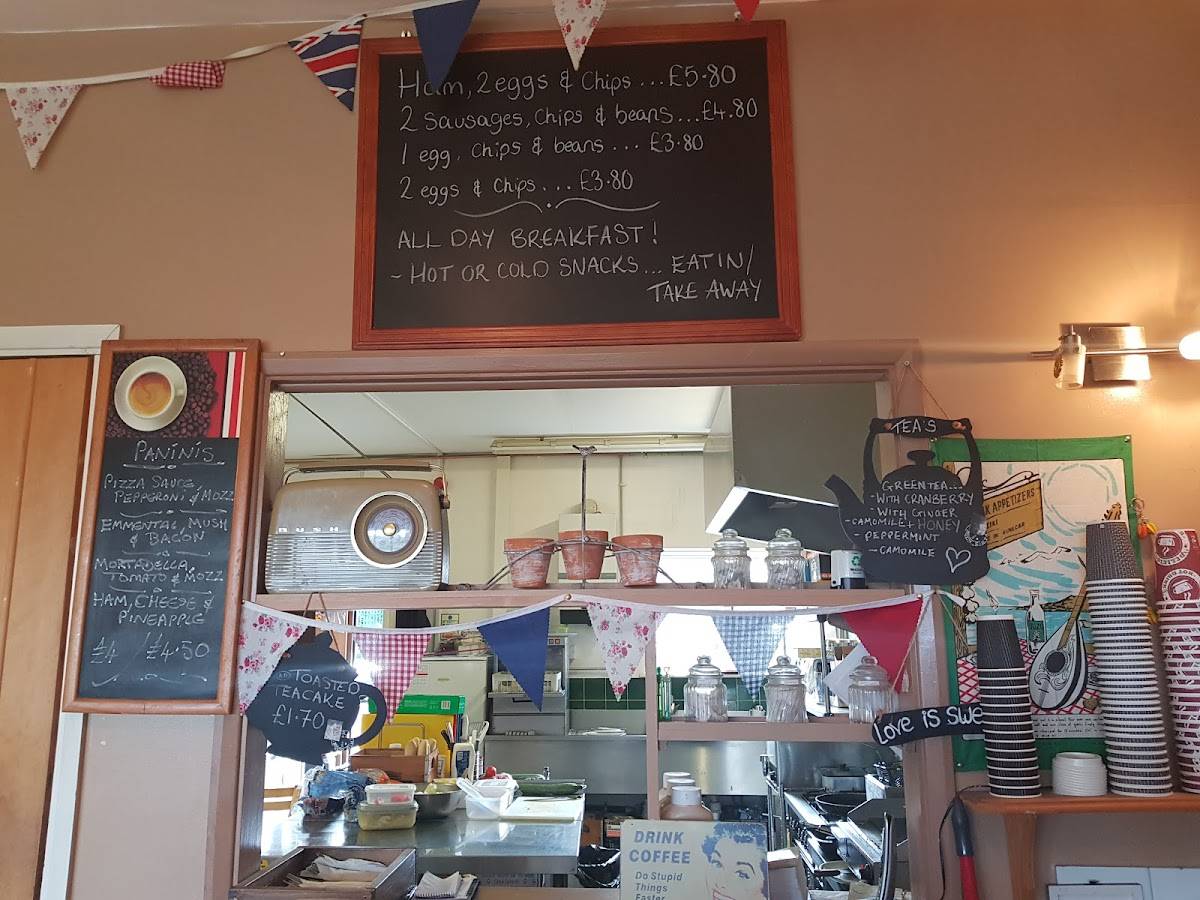 Ham, 2 eggs & Chips ... £5·80
2 Sausages, Chips & beans ... £4.80
1 egg, Chips & beans ... £3·80
2 eggs & Chips ... £3·80
ALL DAY BREAKFAST!
- HOT OR COLD SNACKS... EAT IN/
TAKE AWAY
PANINIS
PIZZA SAUCE,
PEPPERONI & MOZZ
EMMENTAL, MUSH
& BACON
MORTADELLA,
TOMATO & MOZZ
HAM, CHEESE &
PINEAPPLE
£4 / £4.50
BUSH
TEA'S
GREEN TEA...
- WITH CRANBERRY
- WITH GINGER
- CAMOMILE + HONEY
- PEPPERMINT
- CAMOMILE
TOASTED
TEACAKE
£1.70
APPETIZERS
LOVE IS SWE
DRINK
COFFEE
Do Stupid
Things
Faster